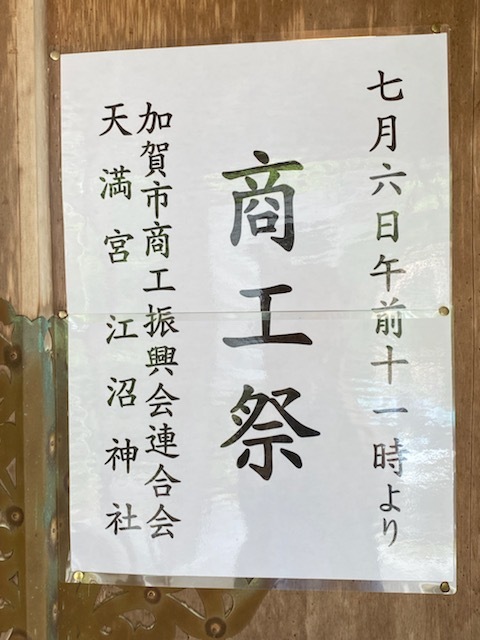 七月六日午前十一時より
商工祭
加賀市商工振興会連合会
天満宮 江沼神社